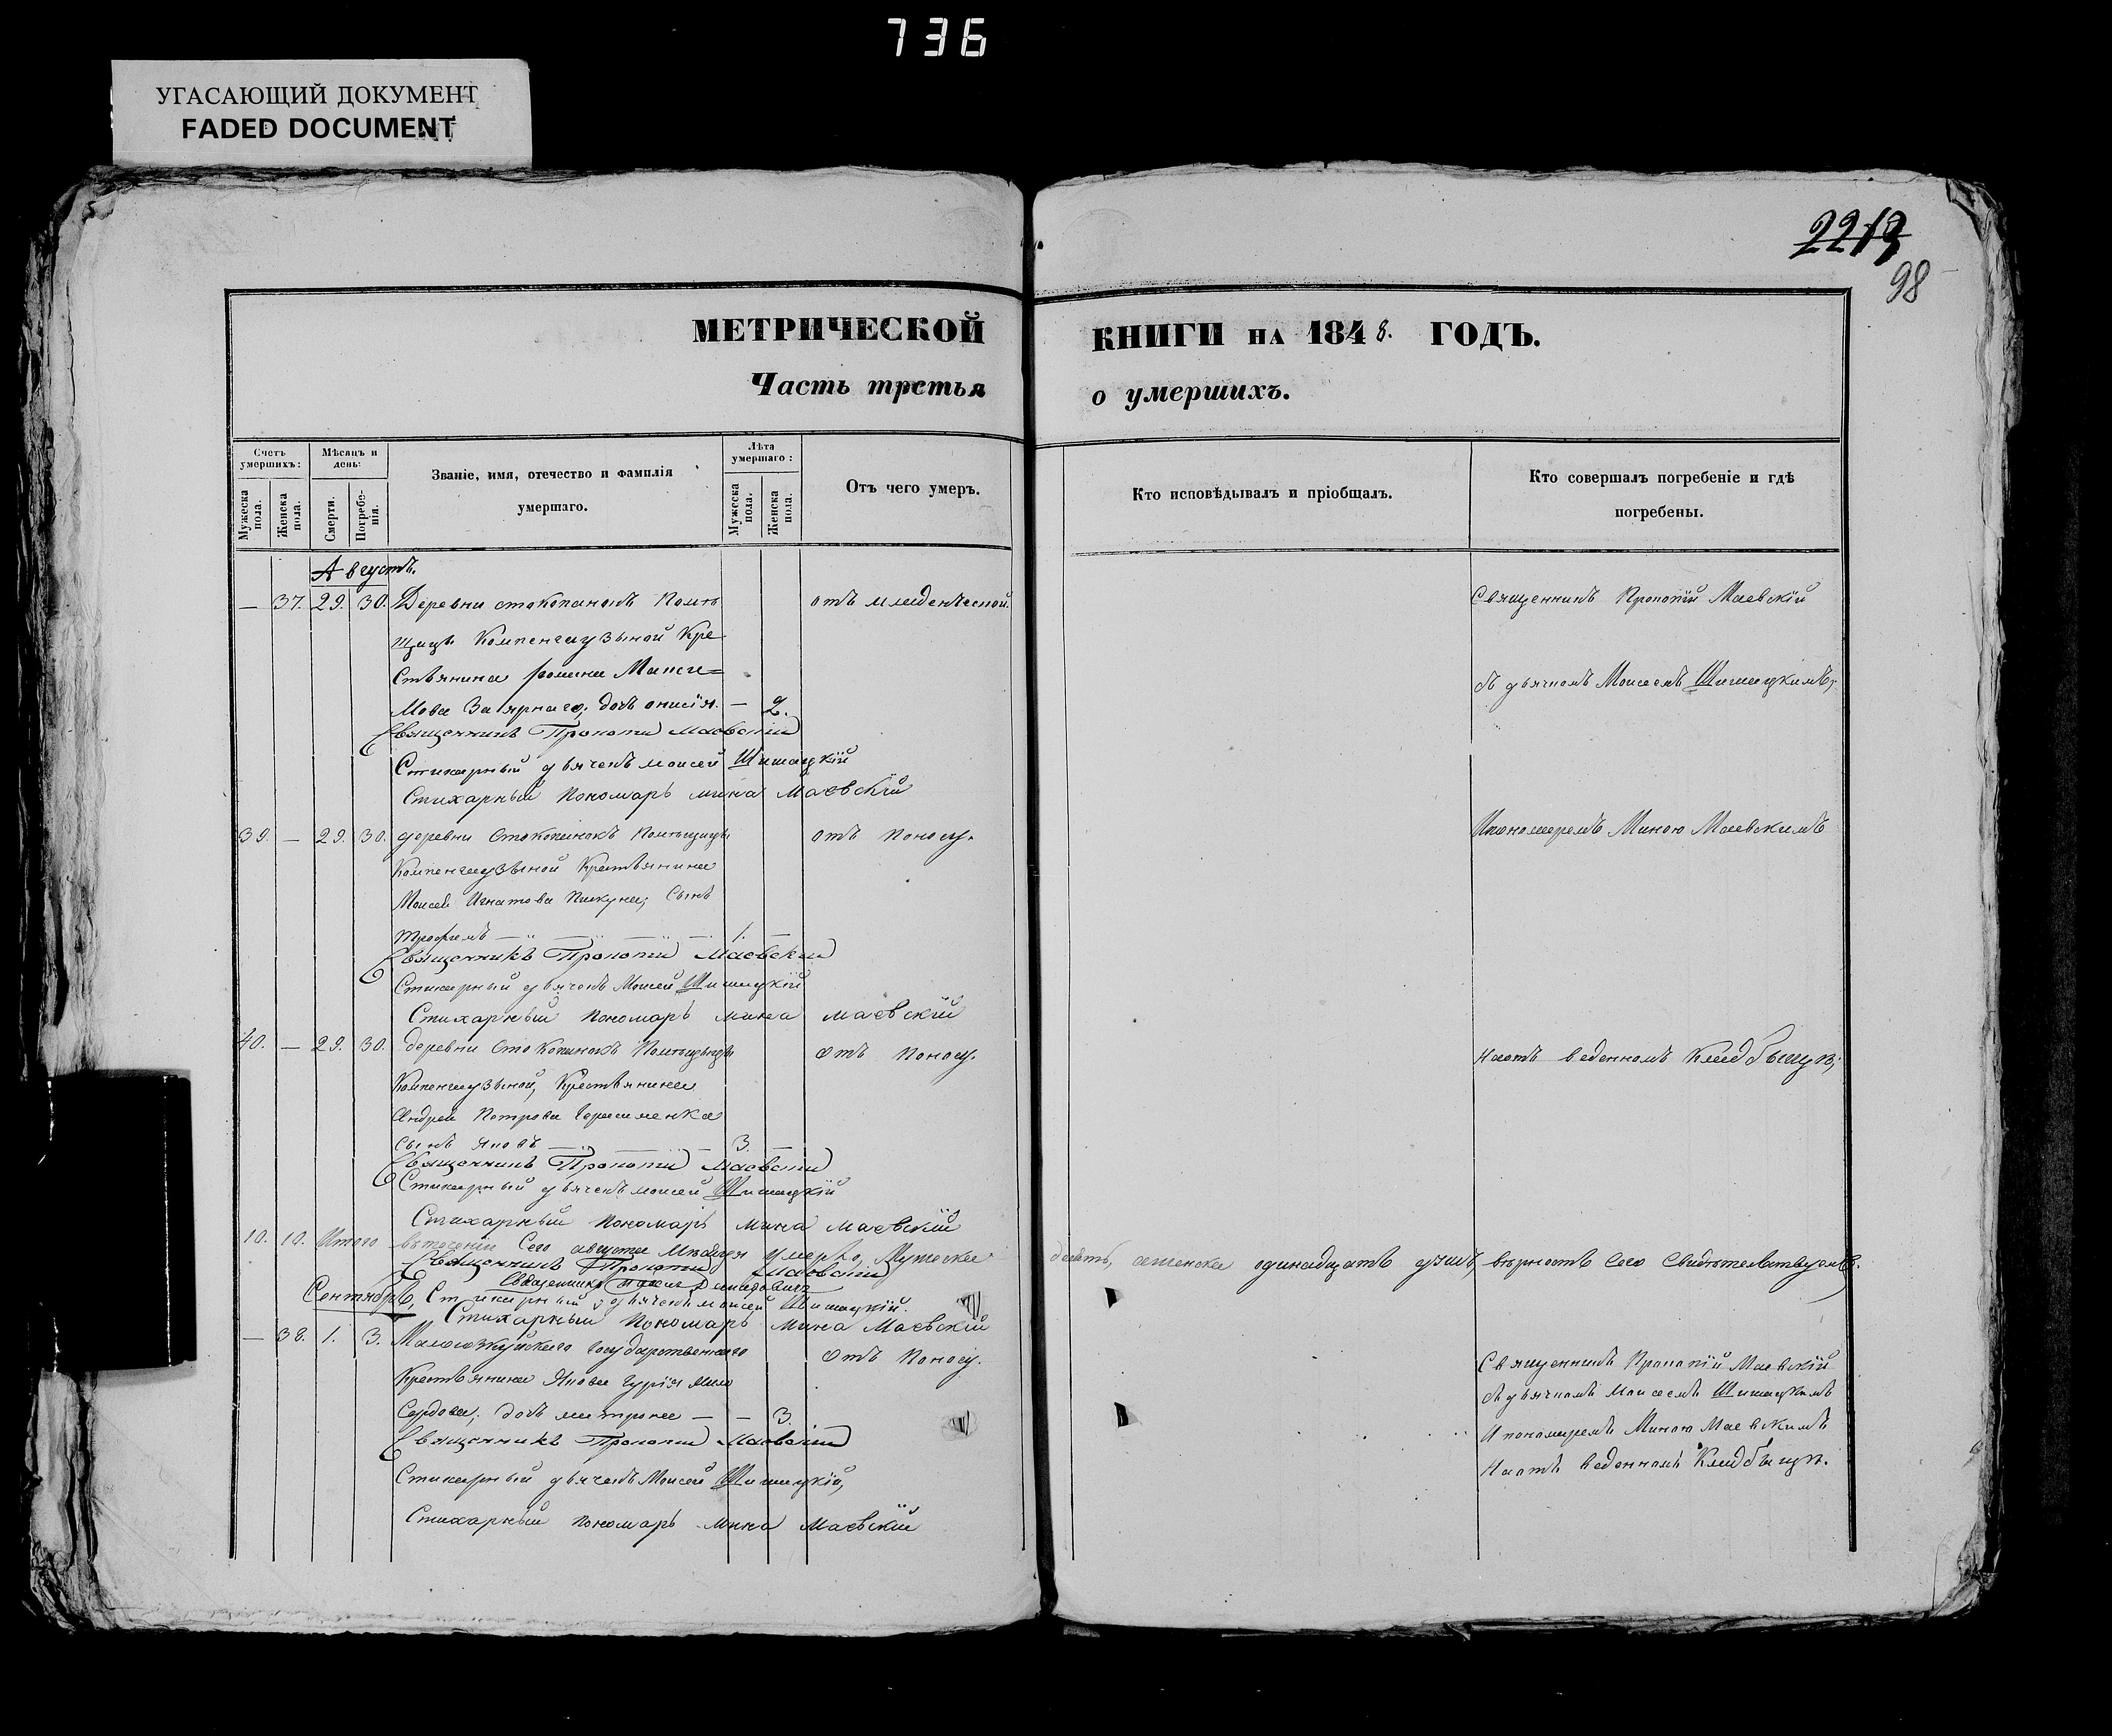 736
УГАСАЮЩИЙ ДОКУМЕНТ
FADED DOCUMENT
2213
98
МЕТРИЧЕСКОЙ КНИГИ НА 1848. ГОДЪ.
Часть третья о умершихъ.
Счетъ умершихъ:
Мужеска пола.
Женска пола.
Мѣсяцъ и день:
Смерти.
Погребенія.
Званіе, имя, отечество и фамилія умершаго.
Лѣта умершаго:
Мужеска пола.
Женска пола.
Отъ чего умеръ.
Кто исповѣдывалъ и пріобщалъ.
Кто совершалъ погребеніе и гдѣ погребены.
Августъ.
— 37. 29. 30. Деревни Стокопанокъ Помѣ отъ младенческой.
щицы Компенгаузыной Кре
стьянина Фомы Макси=
мова Заярнаго; дочь Анисія. — 2.
Священникъ Прокопій Маевскій
Стихарный дьячекъ Моисей Шишацкій
Стихарный Пономарь Мина Маевскій
Священникъ Прокопій Маевскій
съ дьячкомъ Моисеемъ Шишацкимъ;
Ипономаремъ Миною Маевскимъ
39. — 29. 30. деревни Стокопанокъ Помѣщицы отъ поносу.
Компенгаузыной Крестьянина
Моисея Игнатова сынъ
Трофимъ — — — — 1. —
Священникъ Прокопій Маевскій
Стихарный дьячекъ Моисей Шишацкій
Стихарный Пономарь Мина Маевскій
40. — 29. 30. деревни Стокопанокъ Помѣщицы отъ поносу.
Компенгаузыной, Крестьянина
Андрея Петрова Герасименка
сынъ Яковъ — — — 3. —
Священникъ Прокопій Маевскій
Стихарный дьячекъ Моисей Шишацкій
Стихарный Пономарь Мина Маевскій
Наотъ веденномъ кладбыщѣ;
10. 10. Итого втеченіи сего августа мѣсяца умерло, Мужеска десять, женска одинадцать душъ, вѣрность сего свидѣтельствуемъ.
Священникъ Прокопій Маевскій
Священникъ
Сентябрь, Стихарный дьячекъ Моисей Шишацкій.
Стихарный Пономарь Мина Маевскій
— 38. 1. 3. Государственнаго отъ поносу.
Крестьянина Якова Гурія
дочь — — 3.
Священникъ Прокопій Маевскій
Стихарный дьячекъ Моисей Шишацкій,
Стихарный Пономарь Мина Маевскій
Священникъ Прокопій Маевскій
съ дьячкомъ Моисеемъ Шишацкимъ
И пономаремъ Миною Маевскимъ
Наотъ веденномъ Кладбыщѣ.